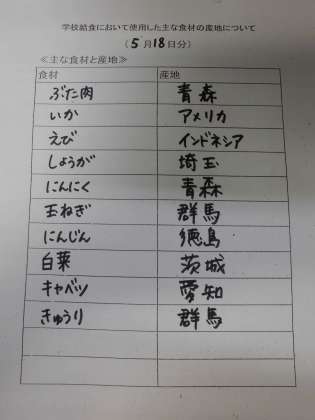 学校給食において使用した主な食材の産地について
(5月18日分)
≪主な食材と産地≫
食材 産地
ぶた肉 青森
いか アメリカ
えび インドネシア
しょうが 埼玉
にんにく 青森
玉ねぎ 群馬
にんじん 徳島
白菜 茨城
キャベツ 愛知
きゅうり 群馬